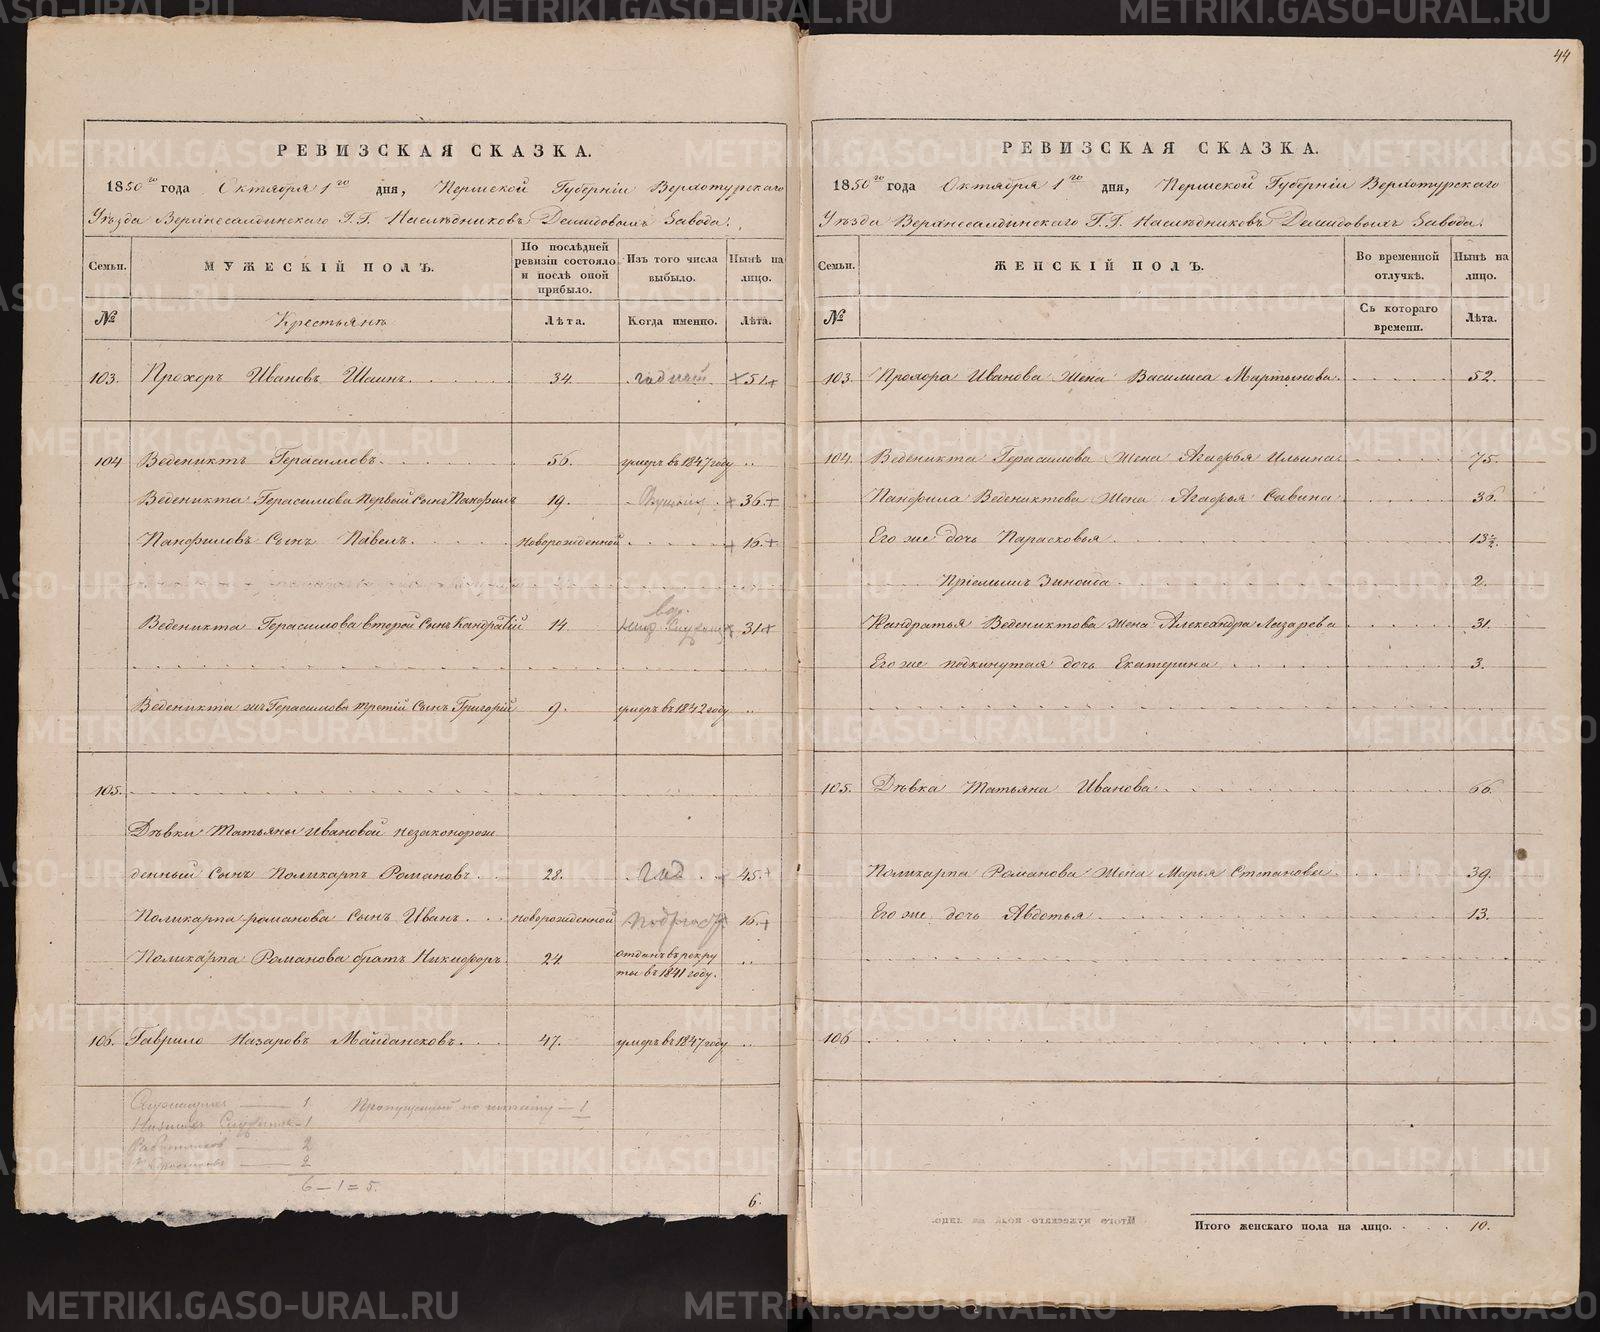 44
РЕВИЗСКАЯ СКАЗКА.
1850го года Октября 1го дня, Пермской Губерніи Верхотурскаго
Уѣзда Верхнесалдинскаго Г.Г. Наслѣдниковъ Демидовыхъ Завода.
Семьи.
МУЖЕСКІЙ ПОЛЪ.
По послѣдней ревизіи состояло и послѣ оной прибыло.
Изъ того числа выбыло.
Нынѣ на лицо.
№
Крестьянъ
Лѣта.
Когда именно.
Лѣта.
103. Прохоръ Ивановъ Шаинъ. 34. 51
104 Веденихтъ Герасимовъ. 56. умеръ въ 1847 году
Веденихта Герасимова первой сынъ Панфилъ 19. 36.
Панфиловъ сынъ Павелъ. новорожденной 16.
Веденихта Герасимова второй сынъ Кандратій 14. 31
Веденихта жъ Герасимова третій сынъ Григорій 9. умеръ въ 1842 году
105.
Дѣвки Татьяны Ивановой незаконорож
денный сынъ Поликарпъ Романовъ. 28. 45.
Поликарпа романова сынъ Иванъ. новорожденной 16.
Поликарпа Романова братъ Никифоръ. 24. отданъ въ рекру
ты въ 1841 году.
106. Гаврило Назаровъ Майдансковъ. 47. умеръ въ 1847 году
1
1
2
2
6 – 1 = 5.
6.
РЕВИЗСКАЯ СКАЗКА.
1850го года Октября 1го дня, Пермской Губерніи Верхотурскаго
Уѣзда Верхнесалдинскаго Г.Г. Наслѣдниковъ Демидовыхъ Завода.
Семьи.
ЖЕНСКІЙ ПОЛЪ.
Во временной отлучкѣ.
Нынѣ на лицо.
№
Съ котораго времени.
Лѣта.
103. Прохора Иванова жена Василиса Мартынова. 52.
104. Веденихта Герасимова жена Агафья Ильина 75.
Панфила Веденихтова жена Агафья Савина 36.
Его же дочь Парасковья 13½.
Пріемышъ Зиноида 2.
Кандратья Веденихтова жена Александра Лазарева 31.
Его же подкинутая дочь Екатерина 3.
105. Дѣвка Татьяна Иванова 66.
Поликарпа Романова жена Марья Степанова 39.
Его же дочь Авдотья 13.
106
Итого женскаго пола на лицо. 10.
METRIKI.GASO-URAL.RU